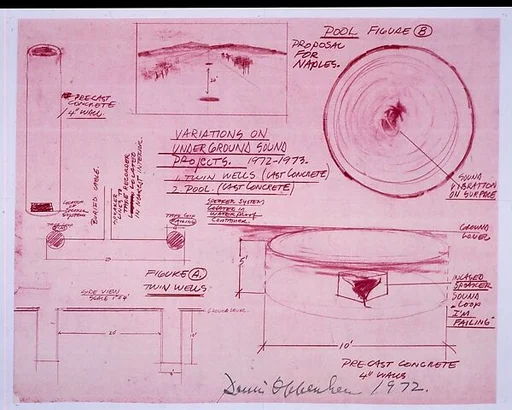 POOL FIGURE B
PROPOSAL
FOR
NAPLES.
PRECAST
CONCRETE
4" WALL
VARIATIONS ON
UNDERGROUND SOUND
PROJECTS. 1972-1973.
1. TWIN WELLS (CAST CONCRETE)
2. POOL. (CAST CONCRETE)
SPEAKER SYSTEM
LOCATED IN
WATER PROOF
CONTAINER
SOUND
VIBRATION
ON SURFACE
BURIED CABLE.
TAPE RECORDER
LOCATED
IN NEAREST INTERIOR.
FIGURE A.
TWIN WELLS
SIDE VIEW
GROUND LEVEL
20'
GROUND
LEVEL
5'
INCASED
SPEAKER
SOUND
"LOOP
I'M
FAILING"
10'
PRECAST CONCRETE
4" WALLS
Dennis Oppenheim 1972.